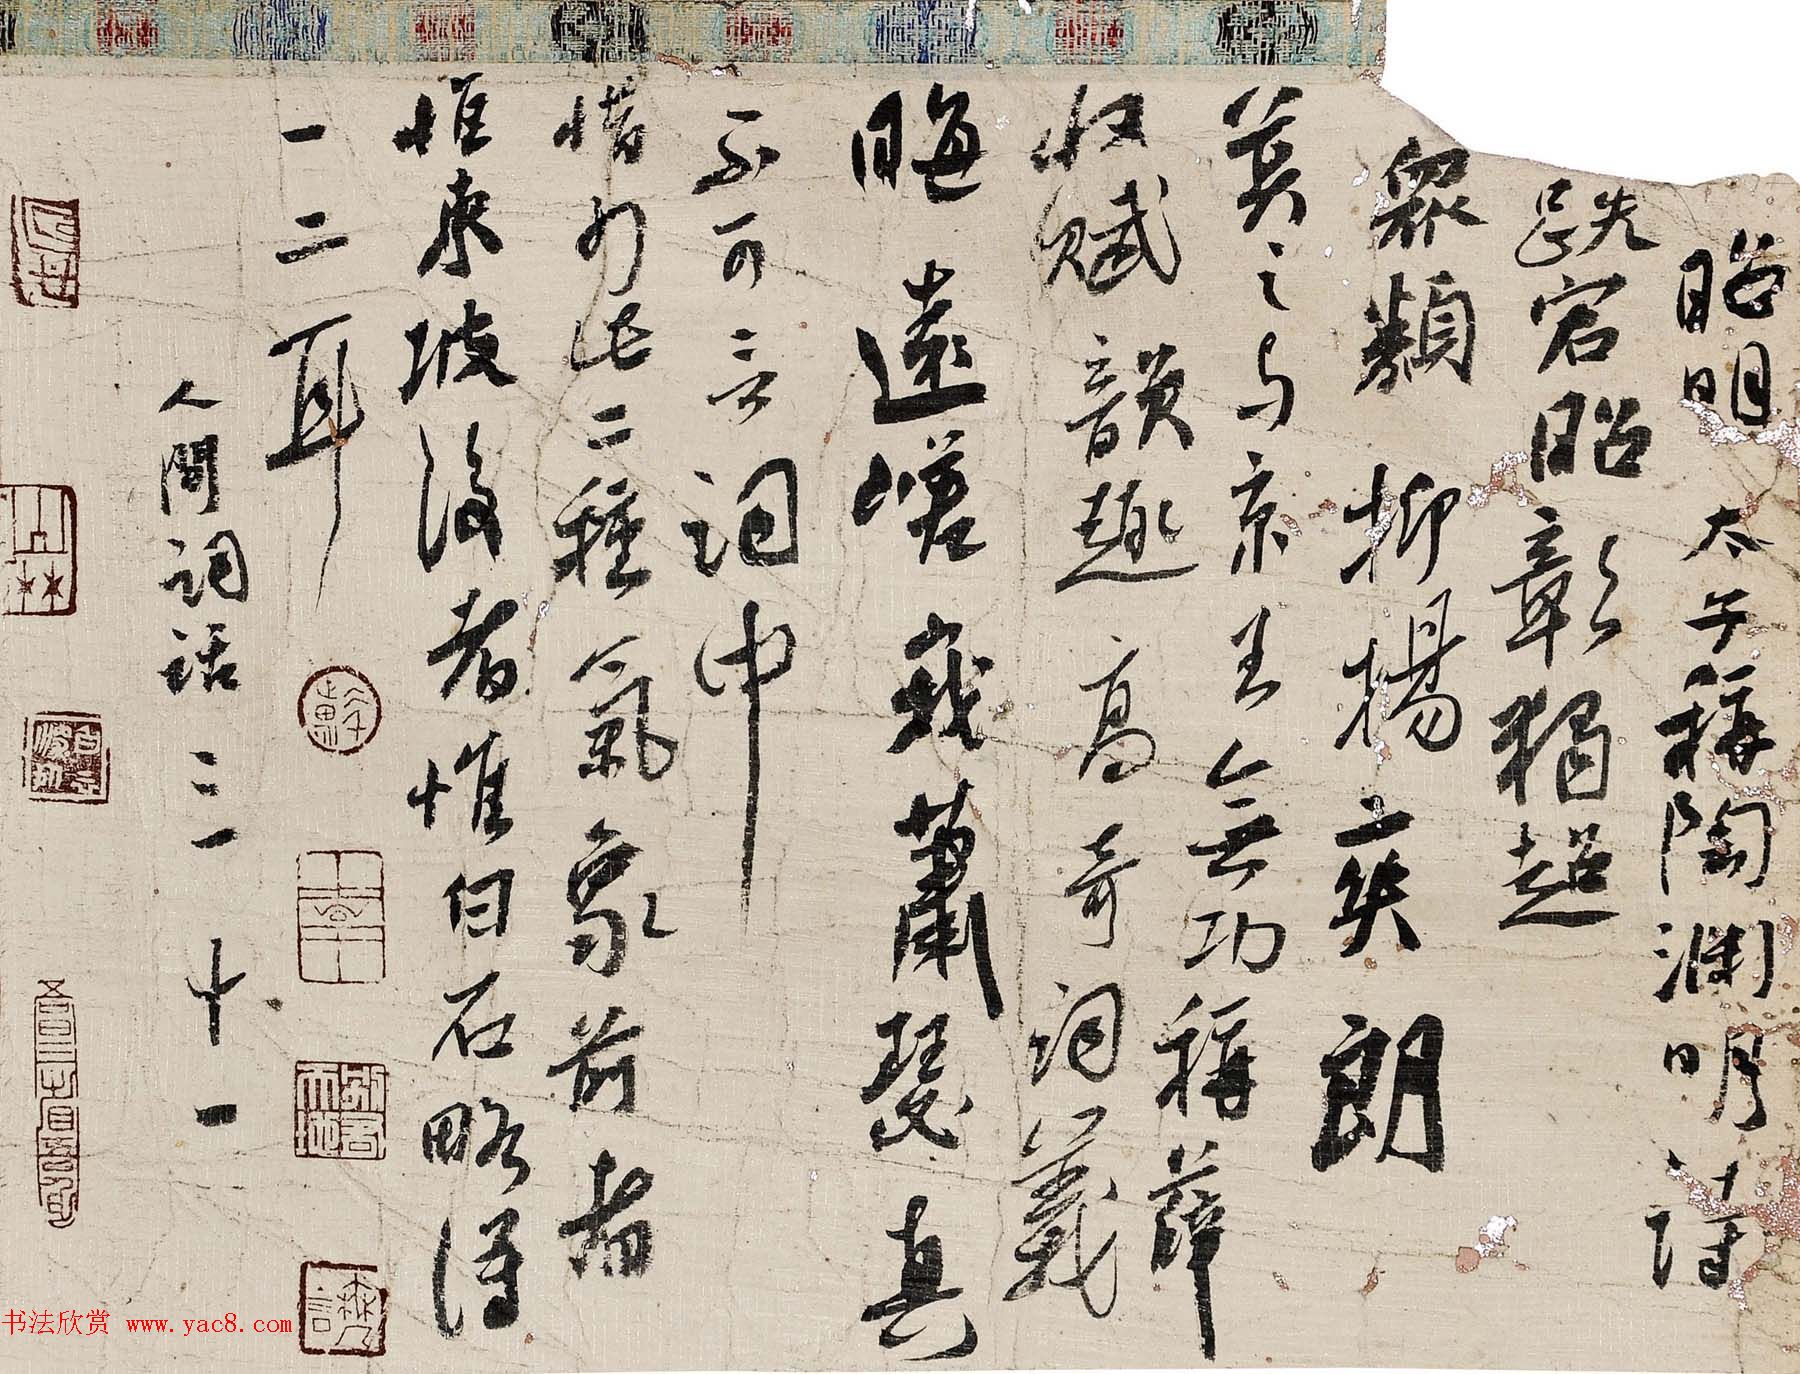 昭明太子稱陶淵明詩
跌宕昭彰獨超
眾類抑揚爽朗
莫之与京王無功稱薛
收賦韻趣高奇詞義
晦遠嵯峨蕭瑟真
不可言詞中
惜少此二種氣象前者
惟東坡後者惟白石略得
一二耳
人間詞話三一十一
书法欣赏 www.yac8.com